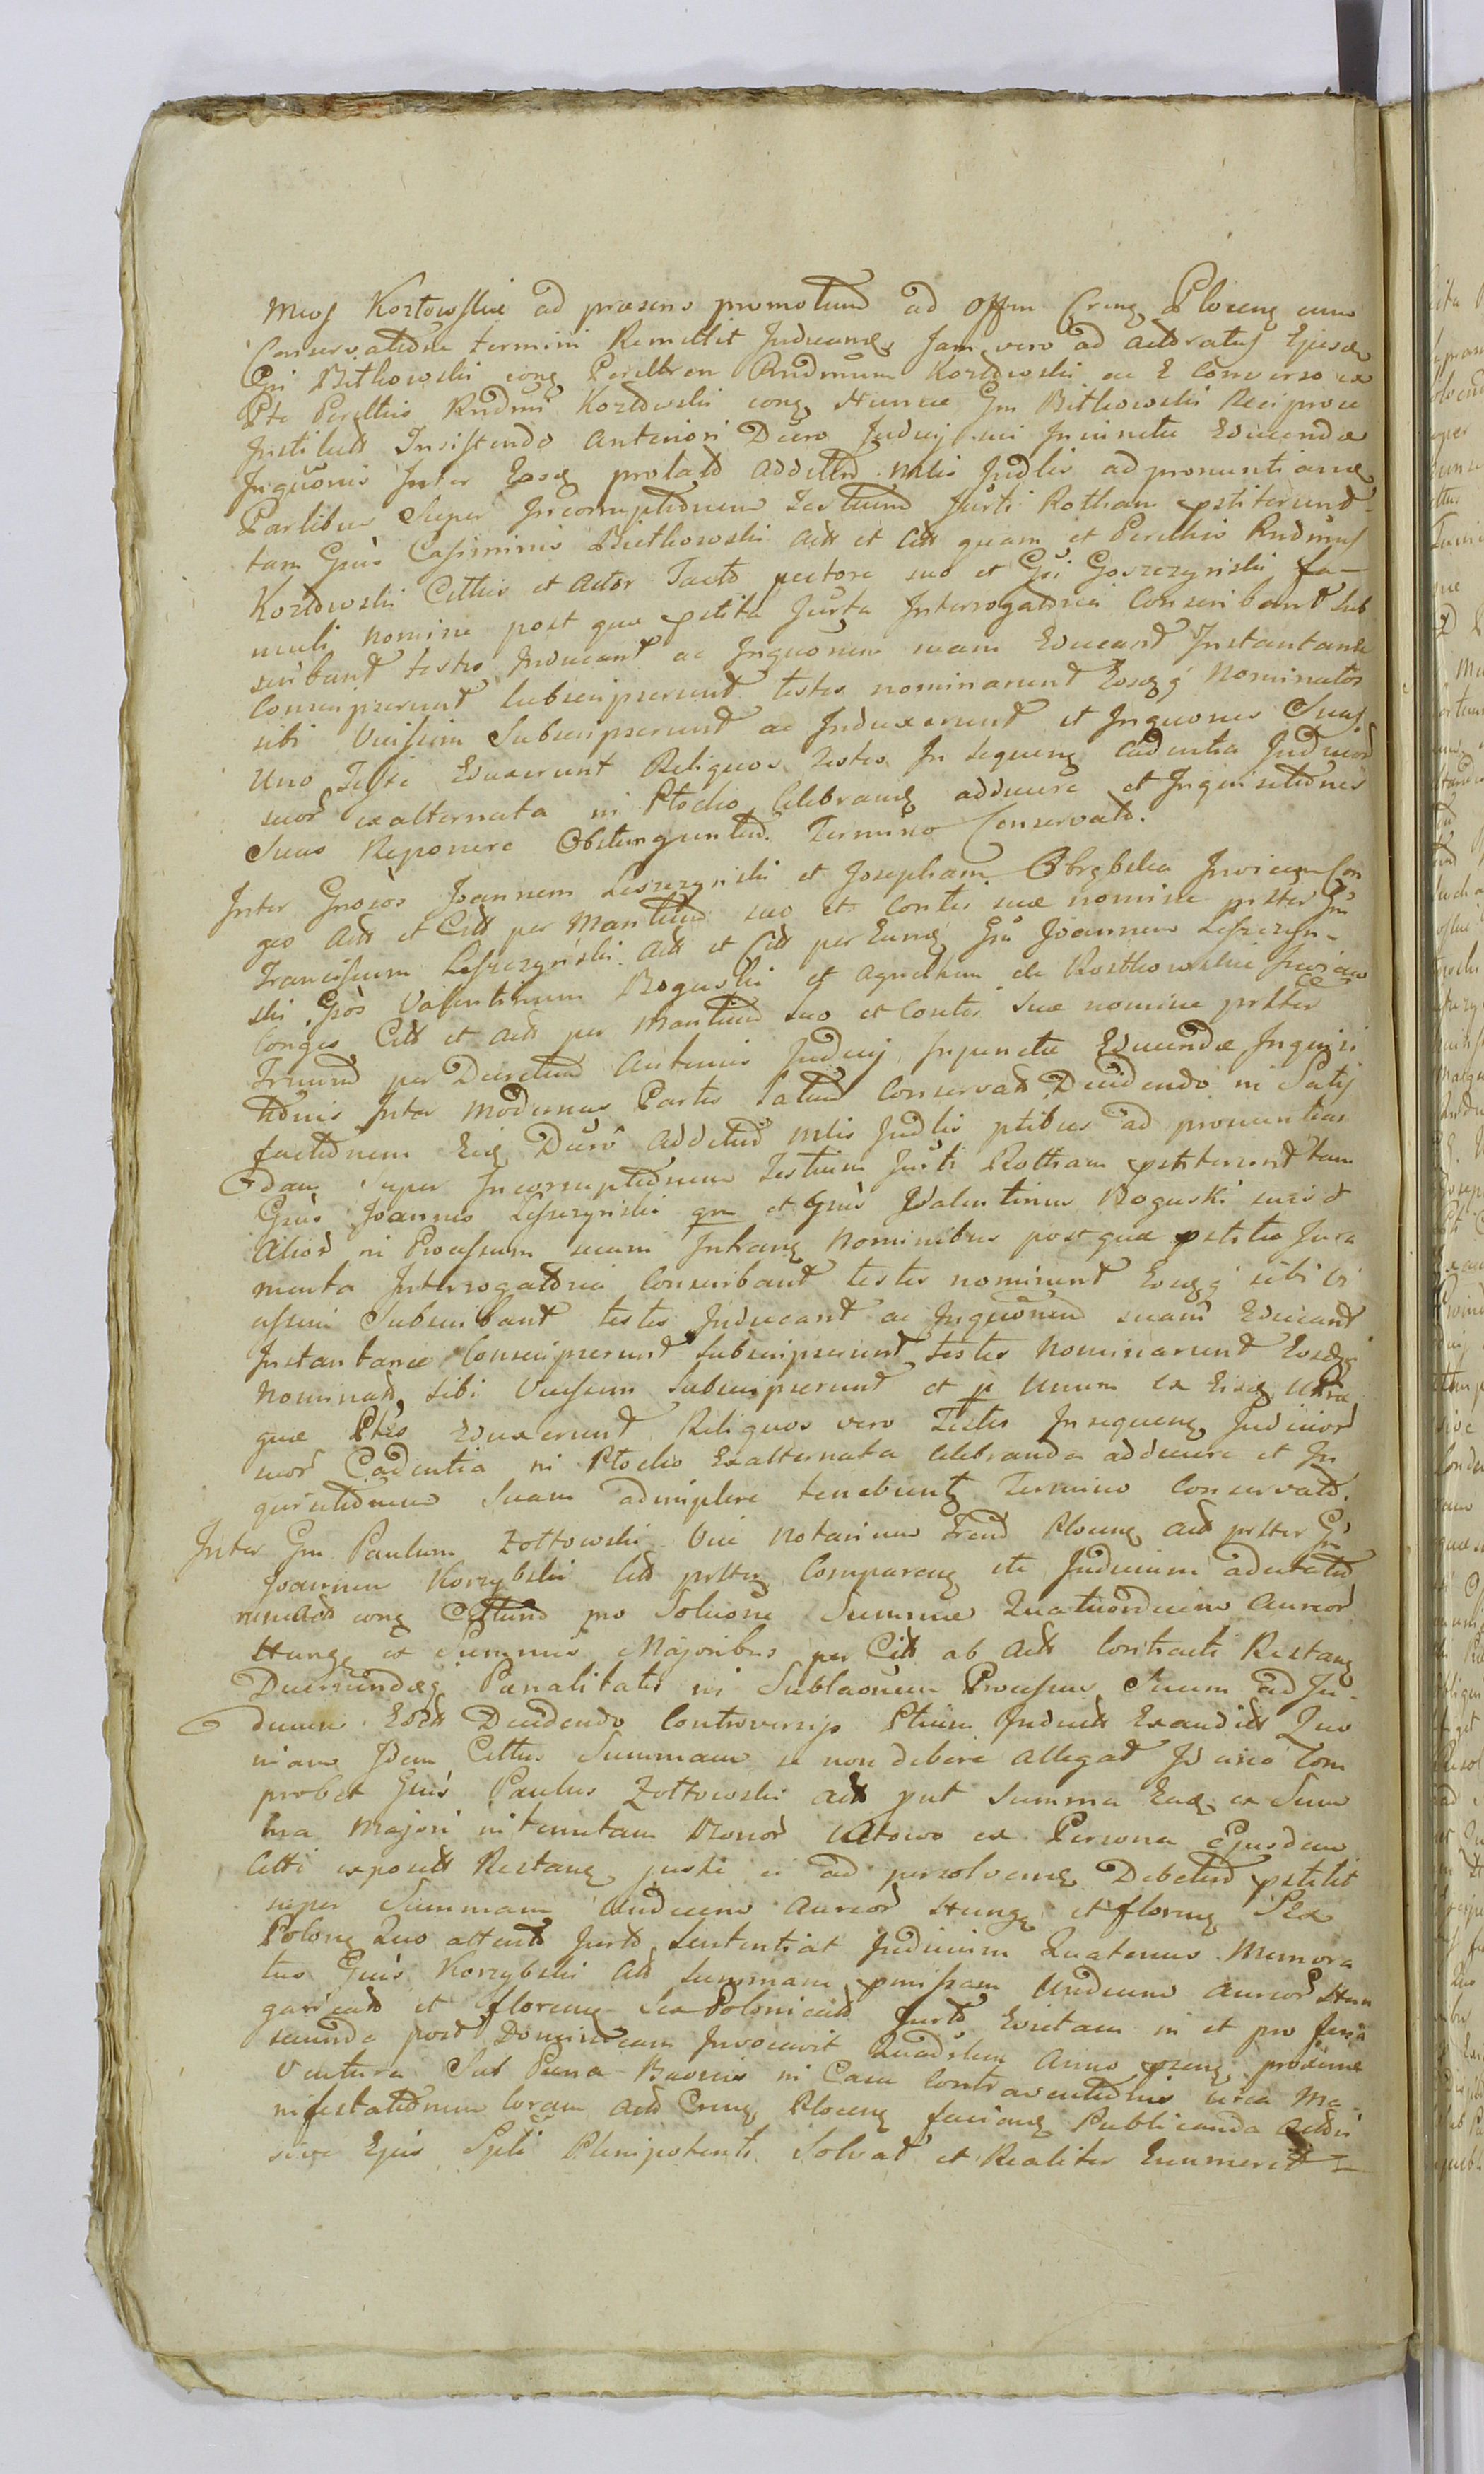 mus Kozłowskie ad præsens promotum ad Offm Creng Ploceng cum
Conservatione termini Remittit Judicanda, Jam vero ad actoratus Ejusd
Gsi Bitkowski cong Perillrem Rndmum Kozłowski ac E Converso ex
Pte Perillris Rndmi Kozłowski cong Hunce Gm Bitkowski Reciproce
Institut Insistendo Anteriori Decro Judicij sui Injunctæ Educendæ
Inqvonis Inter Eosd prolato addittd Mtis Judlis ad pronuntiand
Partibus Super Incorruptionem Testium Jurti Rotham pstiterunt
tam Gsus Casimirus Bietkowski Actt et Citt quam et Perillris Rndmus
Kozłowski Cittus et Actor Tacto pectore suo et Gsi Goszczyński fa-
muli nomine post quæ pstita Jurta Interrogatoria Conscribant Sub
scribant testes Inducant ac Inqvonem suam Educant Instantanee
Conscripserunt Subscripserunt testes nominarunt Eosqg Nominatos
sibi Vicissim Subscripserunt ac Induxerunt et Inqvones Suas
Uno Teste Eduxerunt Reliquos Testes In Sequeng Cadentia Judicior
suor exalternata in Płocko Celebrand adducere et Inquisitiones
Suas Reponere Obstringuntur. Termino Conservato.
Inter Gnosos Joannem Leszczynski et Josepham Obrębska Invicem Con
ges Actt et Citt per Maritum suo et Contis suæ nomine prster Gm
Franciscum Leszczyński Actt et Citt per Eund Gm Joannem Leszczyń-
ski Gsos Valentinum Boguski et Agnetem de Rostkowskie Invicem
Conges Citt et Actt per Maritum suo et Contis suæ nomine prstter
Trmnd per Decretum Anterius Judicij Injunctæ Educendæ Inquisi
tionis Inter Modernas Partes Latum Conservatt Decidendo in Satis
factionem Eid Decro Addittd Mtis Judlis ptibus ad pronuntian
dam Super Incorruptionem Testium Jurti Rotham pstiterunt tam
Gsus Joannes Leszczyński qm et Gsus Valentinus Boguski suis et
Alior in Processum secum Intrang Nominibus post quæ pstita Jura
menta Interrogatoria Conscribant testes nominent Eosqg sibi vi
cissim Subscribant testes Inducant ac Inqvonem suam Educant
Instantanee Conscripserunt Subscripserunt testes Nominarunt Eosqg
Nominatt sibi Vicissim Subscripserunt et p Unum ex Eisd Utra
que Ptes Eduxerunt Reliquos vero Testes Insequeng Judicior
suor Cadentia in Płocko Exalternata Celebranda adducere et In
quisitionem Suam adimplere tenebuntr Termino Conservato.
Inter Gm Paulum Zołtowski Vice Notarium Trend Ploceng Actt prster Gm
Joannem Korzybski Citt prster Compareng ite Judicium ad
rumactt cong Cittum pro Solutione Summæ Quatuordecim Aureor
Hung ex Summis Majoribus per Citt ab Actt Contracti Restang
Ducendæqg Pænalitatis in Sublaonem Processus Suum ad Ju-
dicium Edtt Decidendo Controversijs Ptium Inductt Exauditt Quo
niam Idem Cittus Summam se non debere allegat Id circo Com
probet Gsus Paulus Zołtowski Actt put Summa Ead ex Sum
ma Majori in tenutam Bonor Ułtowo ex Persona Ejusdem
Citti exposita Restang juste ei ad persolvend Debetur pstitit
super Summam Undecim Aureor Hung et floreng Sex
Polong Quo attento Jurto Sententiat Judicium Quatenus Memora
tus Gsus Korzybski Citt Summam pmissam Undecim Aureor Hun
garicatt et floreng Sex Polonicatt Jurto Evictam in et pro feria
secunda post Dominicam Invocavit Quadrlem Anno pseng proxime
Ventura Sub Pæna Bannis in Casu Contraventionis circa Ma-
nifestationem Coram Actt Creng Ploceng faciend Publicanda Actori
sive Ejus Spli Plenipotenti Solvat et Realiter Enumeret